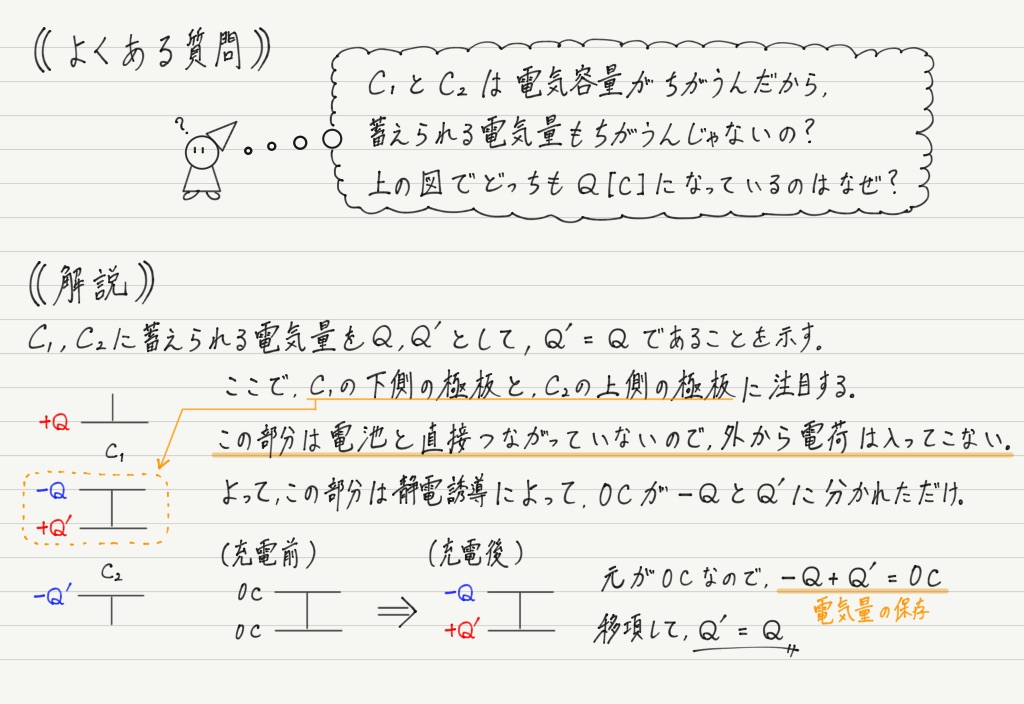 《よくある質問》
C₁とC₂は電気容量がちがうんだから,
?
蓄えられる電気量もちがうんじゃないの?
上の図でどっちもQ[C]になっているのはなぜ?
《解説》
C₁,C₂に蓄えられる電気量をQ,Q′として,Q′=Qであることを示す.
ここで,C₁の下側の極板と,C₂の上側の極板に注目する.
+Q
C₁
この部分は電池と直接つながっていないので,外から電荷は入ってこない.
-Q
よって,この部分は静電誘導によって,0Cが-QとQ′に分かれただけ.
+Q′
(充電前)
(充電後)
C₂
-Q′
0C
-Q
元が0Cなので,-Q+Q′=0C
電気量の保存
0C
+Q′
移項して,Q′=Q